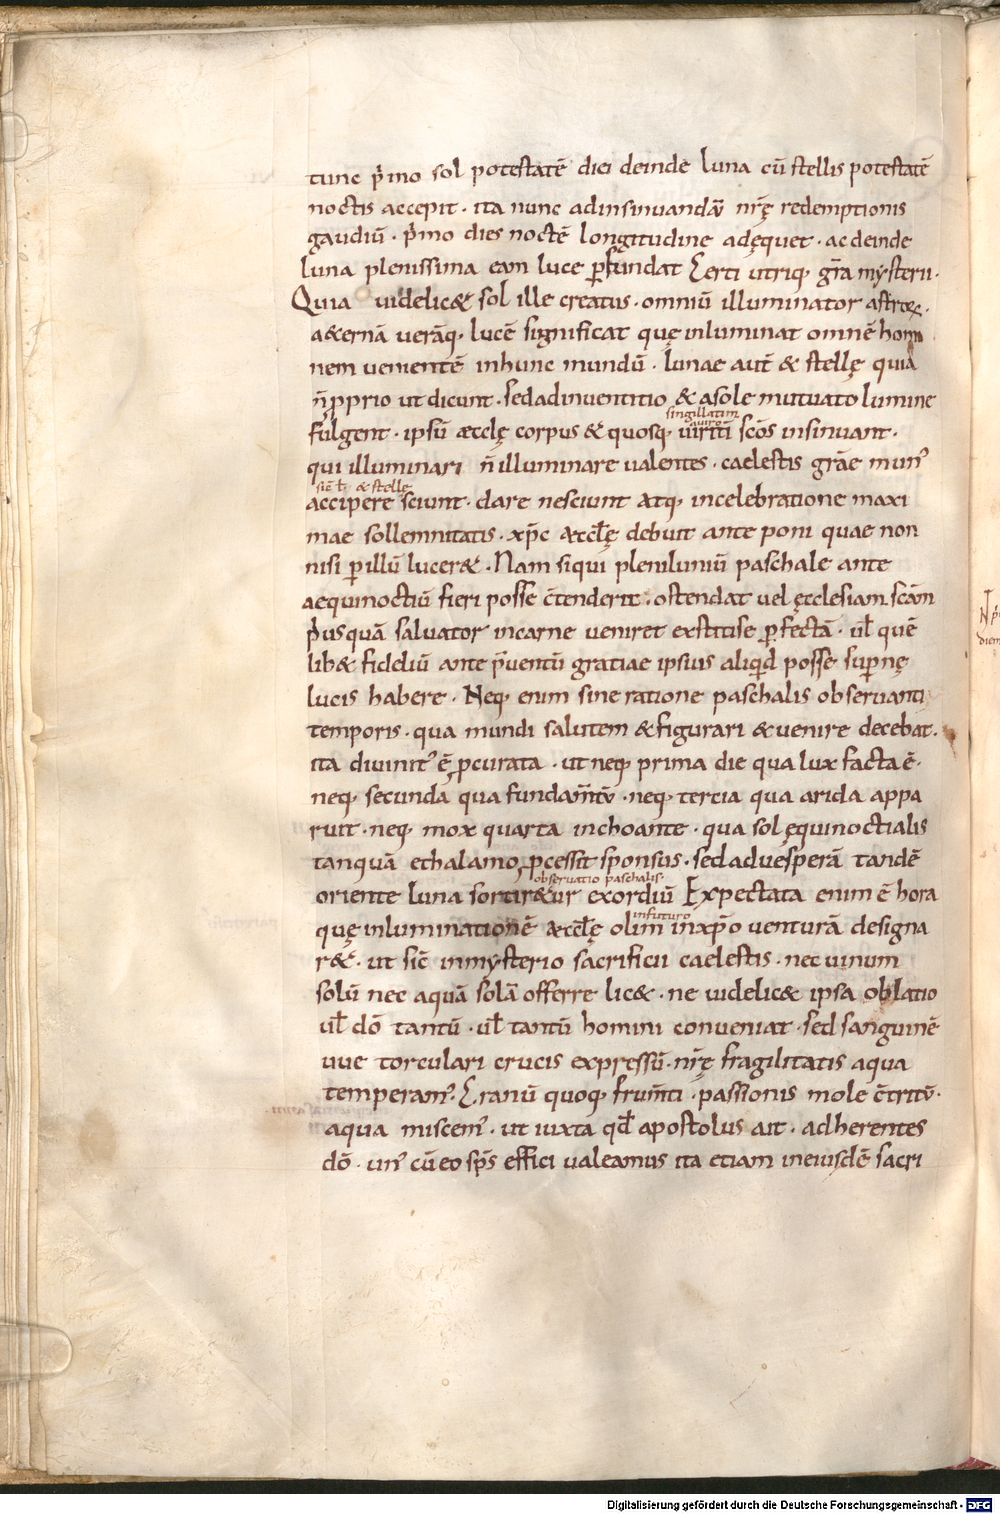 tunc p̄mo sol potestatē diei deinde luna cū stellis potestatē
noctis accepit · ita nunc adinsinuandā nr̄ę redemptionis
gaudiū · p̄mo dies noctē longitudine adęquet · ac deinde
luna plenissima eam luce ꝑfundat Certi utriq; gr̄a mysterii ·
Quia videlic& sol ille creatus · omniū illuminator astroꝝ ·
a&ernā verāq; lucē significat quę inluminat omnē homi
nem venientē inhunc mundū · Lunae aut̄ & stellę quia
n̄ ꝓprio ut dicunt · sedadinventitio & asole mutuato lumine
singillatim
fulgent · ipsū æcclę corpus & quosq; uirītī scōs insinuant ·
qui illuminari n̄ illuminare valentes · caelestis grāe mun᾽
sic̄ t̄ & stellę
accipere sciunt · dare nesciunt Atq; incelebratione maxi
mae sollemnitatis · xp̄c æccl̄ę debuit ante poni quae non
nisi ꝑ illū lucer& · Nam siqui pleniluniū paschale ante
aequinoctiū fieri posse c̄tenderit · ostendat vel ęcclesiam scām
p̄usquā salvator incarne veniret exstitise ꝑfectā · ul̄ quē
lib& fideliū ante p̄ventū gratiae ipsius aliqid posse supnę
lucis habere · Neq; enim sine ratione paschalis observanti
temporis · qua mundi salutem &figurari &venire decebat ·
ita divinit᾽ ē ꝓcurata · ut neq; prima die qua lux facta ē ·
neq; secunda qua fundam̄tū · neq; tercia qua arida appa
ruit · neq; mox quarta inchoante · qua sol ęquinoctialis
tanquā ethalamo ꝓcessit sponsus · sedaduesperā tandē
observatio paschalis ·
oriente luna sortir&ur exordiū Expectata enim ē hora
infuturo
quę inluminationē æccl̄ę olim inxp̄o venturā designa
r& · ut sic̄ inmysterio sacrificii caelestis · nec vinum
solū nec aquā solā offerre lic& · ne videlic& ipsa oblatio
ul̄ dō tantū · ul̄ tantū homini conveniat · sed sanguinē
uve torculari crucis expressū · nr̄ę fragilitatis aqua
temperam᾽ · Granū quoq; frum̄ti · passionis mole c̄tritū ·
aqua miscem᾽ · ut iuxta qđ apostolus ait · adherentes
dō · un᾽ cū eo sp̄s effici valeamus ita etiam ineiusdē sacri
Digitalisierung gefördert durch die Deutsche Forschungsgemeinschaft - DFG